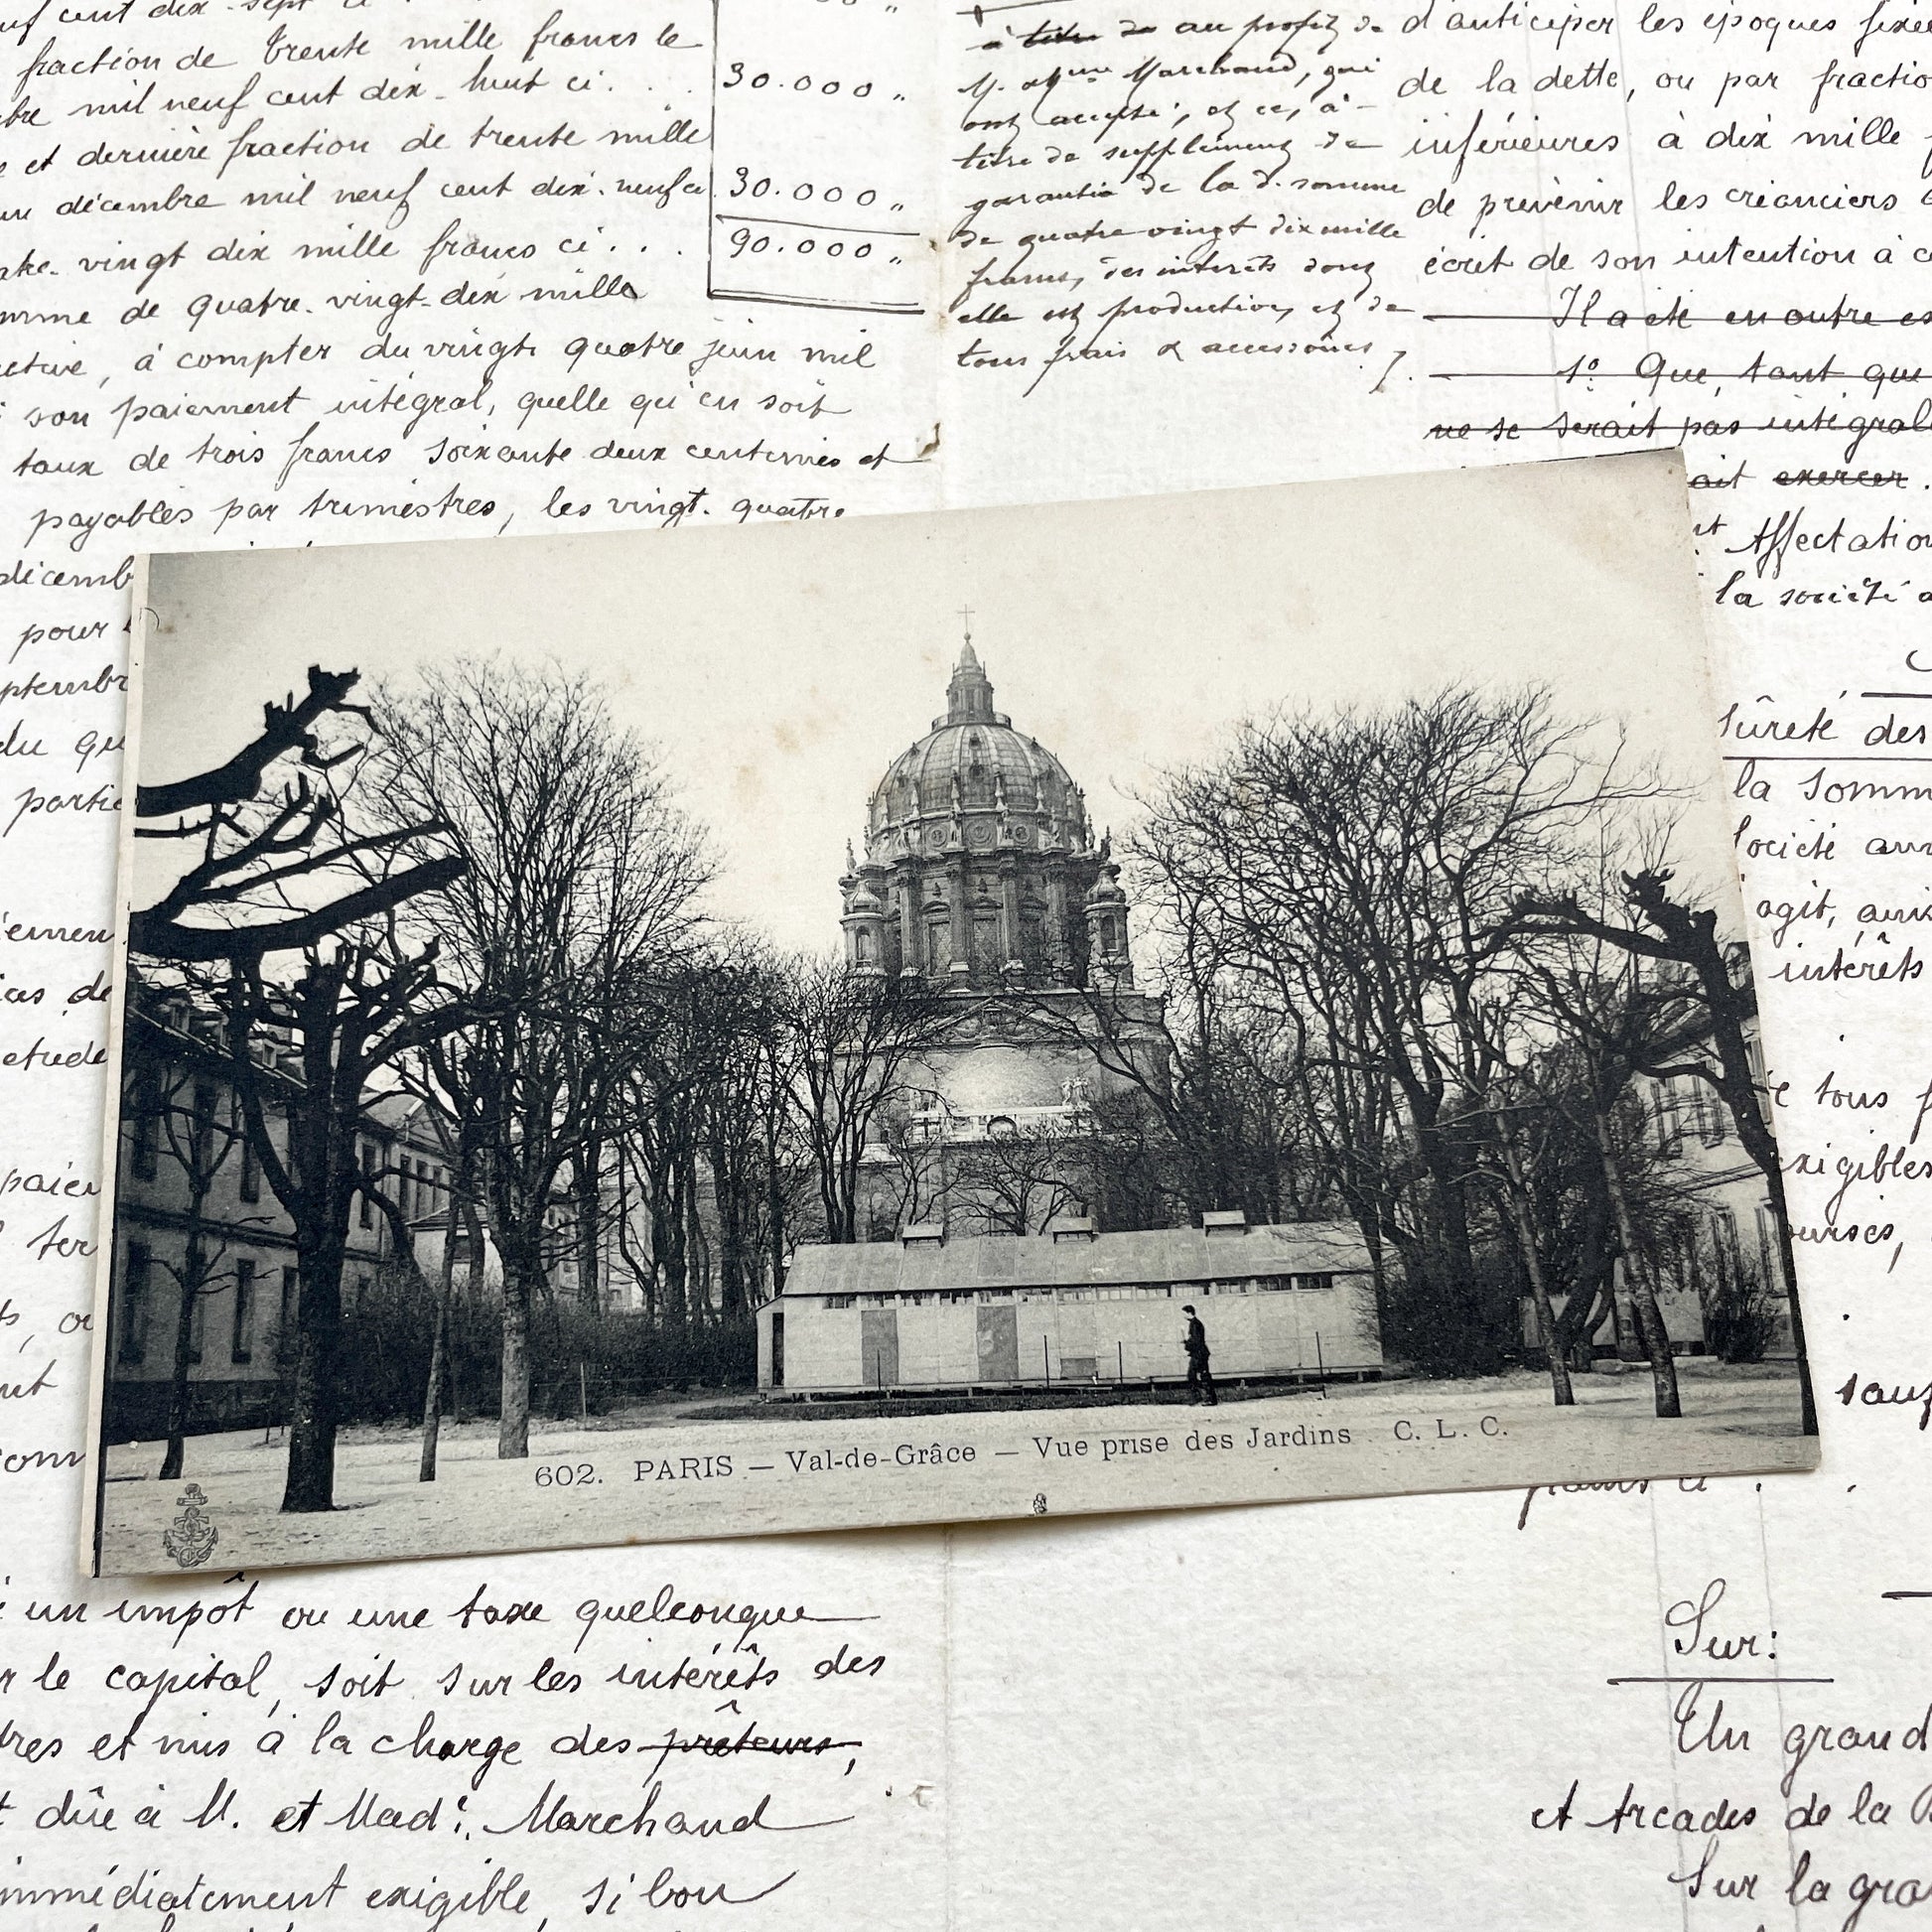 fraction de trente mille francs le
mil neuf cent dix-huit ci. . .
30.000 "
et dernière fraction de trente mille
décembre mil neuf cent dix-neuf ci
30.000 "
vingt dix mille francs ci. . .
90.000 "
de quatre-vingt-dix mille
, à compter du vingt quatre juin mil
son paiement intégral, quelle qu'en soit
taux de trois francs soixante deux centimes et
payables par trimestres, les vingt-quatre
pour
du
à titre de au profit de
M. et Mme Marchand, qui
ont accepté, et ce, à
titre de supplément de
garantie de la d. somme
de quatre vingt dix mille
francs, des intérêts dont
elle est productive, et de
tous frais & accessoires /.
d'anticiper les époques
de la dette, ou par
inférieures à dix mille
de prévenir les créanciers
écrit de son intention à
Il a été en outre
1º Que, tant que
ne se serait pas
exercer.
Affectation
la société
sûreté des
la
société
agit,
intérêts
tous
exigibles
602. PARIS — Val-de-Grâce — Vue prise des Jardins C. L. C.
un impôt ou une taxe quelconque
le capital, soit sur les intérêts des
et mis à la charge des prêteurs,
dûe à M. et Mad.e Marchand
immédiatement exigible, si bon
Sur:
Un grand
et Arcades de la
Sur la